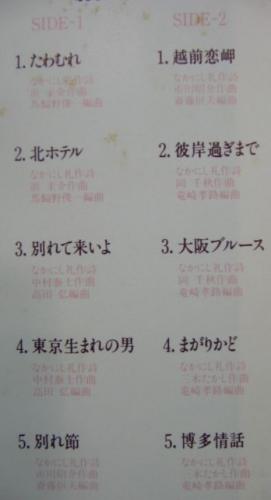 SIDE-1
1.たわむれ
なかにし礼作詩
浜 圭介作曲
馬飼野俊一編曲
2.北ホテル
なかにし礼作詩
浜 圭介作曲
馬飼野俊一編曲
3.別れて来いよ
なかにし礼作詩
中村泰士作曲
高田 弘編曲
4.東京生まれの男
なかにし礼作詩
中村泰士作曲
高田 弘編曲
5.別れ節
なかにし礼作詩
市川昭介作曲
斎藤恒夫編曲
SIDE-2
1.越前恋岬
なかにし礼作詩
市川昭介作曲
斎藤恒夫編曲
2.彼岸過ぎまで
なかにし礼作詩
岡 千秋作曲
竜崎孝路編曲
3.大阪ブルース
なかにし礼作詩
岡 千秋作曲
竜崎孝路編曲
4.まがりかど
なかにし礼作詩
三木たかし作曲
竜崎孝路編曲
5.博多情話
なかにし礼作詩
三木たかし作曲
竜崎孝路編曲